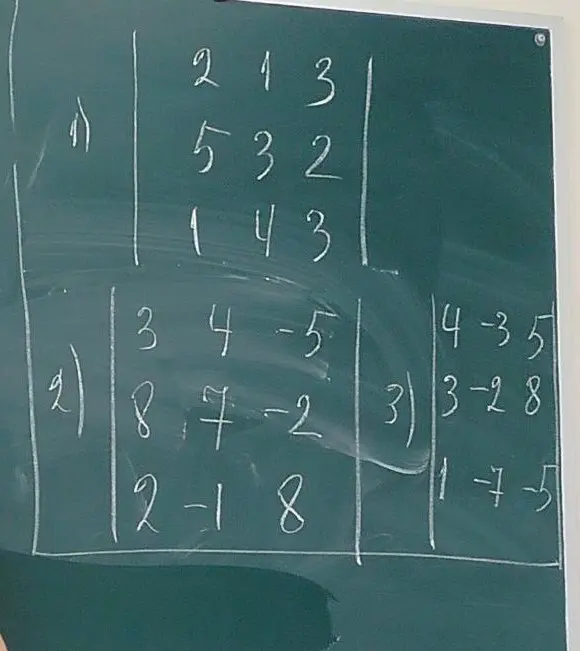 1) | 2 1 3 |
| 5 3 2 |
| 1 4 3 |
2) | 3 4 -5 |
| 8 7 -2 |
| 2 -1 8 |
3) | 4 -3 5 |
| 3 -2 8 |
| 1 -7 -5 |